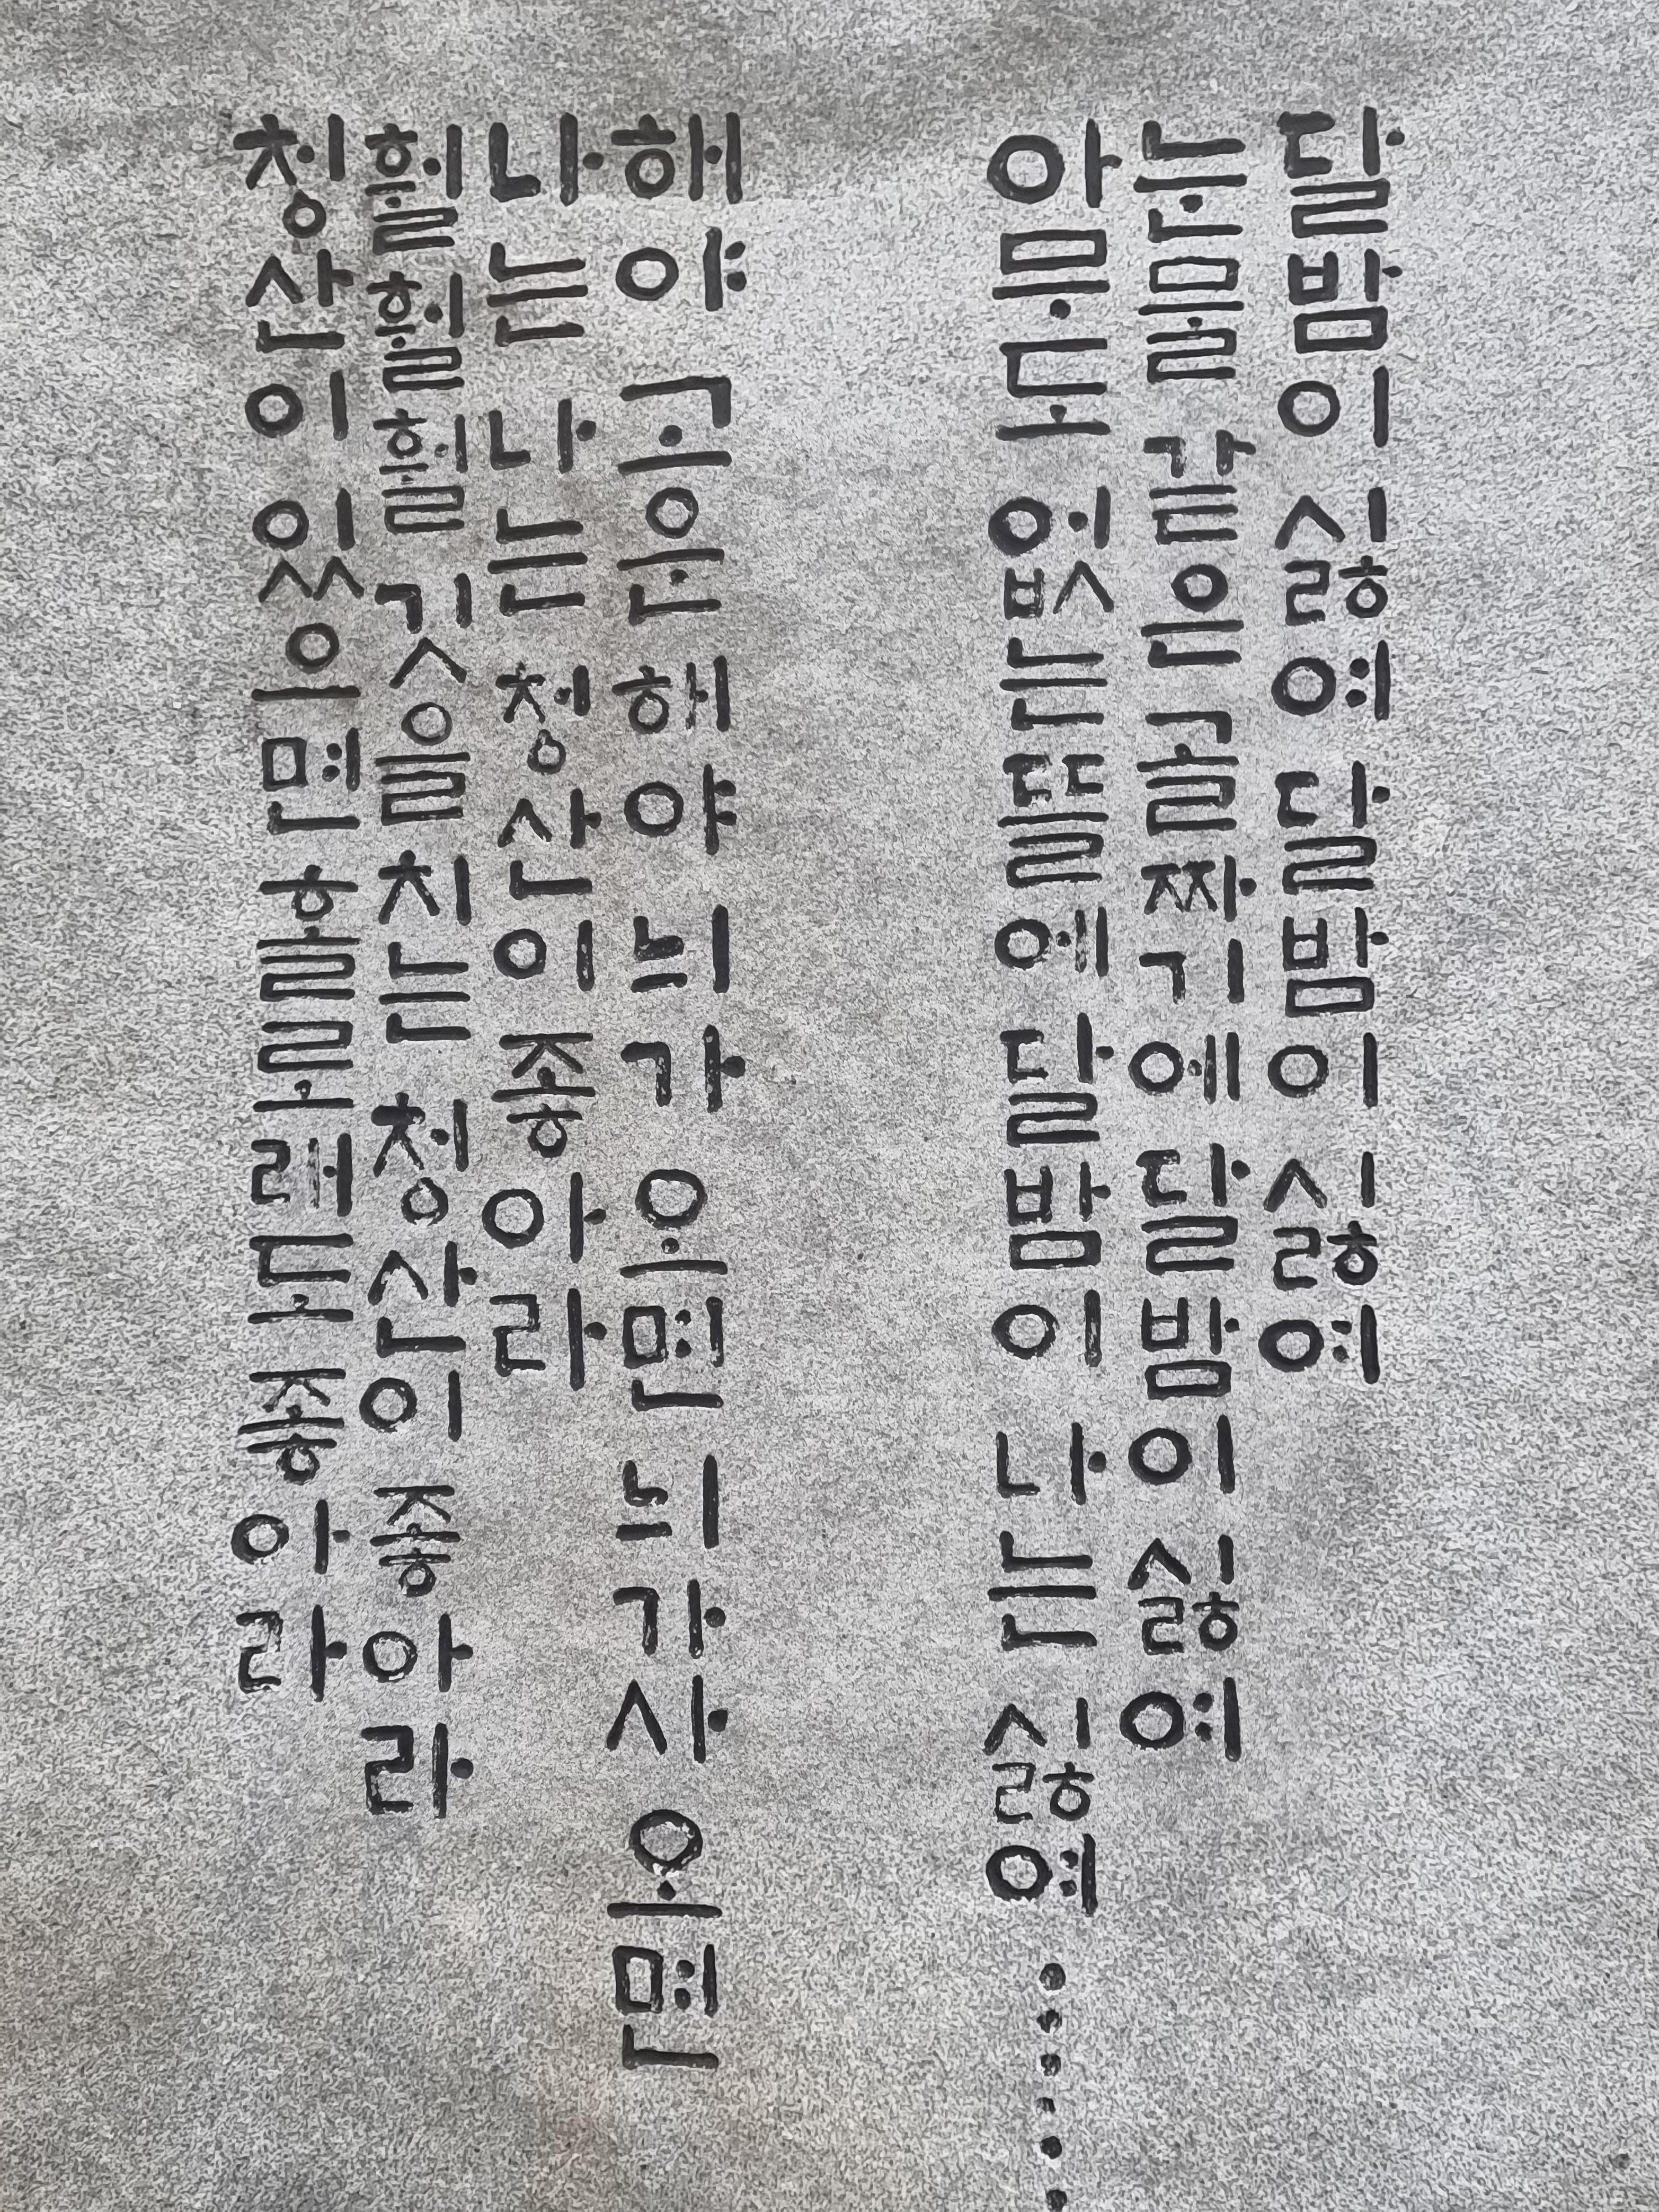 달밤이 싫여 달밤이 싫여
눈물 같은 골짜기에 달밤이 싫여
아무도 없는 뜰에 달밤이 나는 싫여……
해야 고운 해야 늬가 오면 늬가사 오면
나는 나는 청산이 좋아라
훨훨훨 깃을 치는 청산이 좋아라
청산이 있으면 홀로래도 좋아라